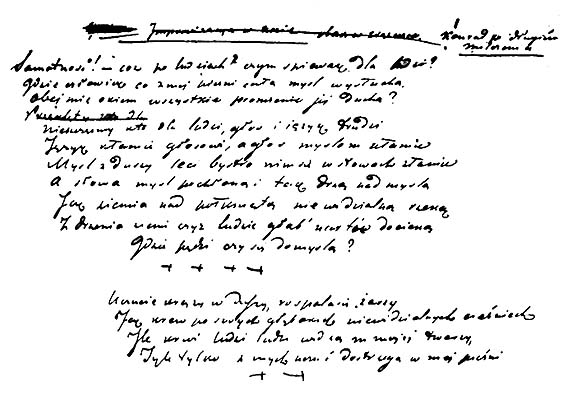 Improwizacja
Konrad po długim milczeniu
Samotność! – cóż po ludziach? czym śpiewak dla ludzi?
Gdzie człowiek co z mej pieśni całą myśl wysłucha
Obejmie okiem wszystkie promienie jej Ducha?
Nieszczęsny kto dla ludzi, głos i język trudzi
Język kłamie głosowi, a głos myślom kłamie
Myśl z duszy leci bystro nim się w słowach złamie
A słowa myśl pochłoną i tak drżą nad myślą
Jak ziemia nad połkniętą niewidzialną rzeką
Z drżenia ziemi czyż ludzie głąb nurtów docieką
Gdzie pędzi czy się domyślą?
Uczucie krąży w Duszy, rozpala się, żarzy
Jak krew po swych głębokich niewidzialnych
Ile krwi ludzie widzą w mojej twarzy
Tyle tylko z mych uczuć dostrzegą w mej pieśni